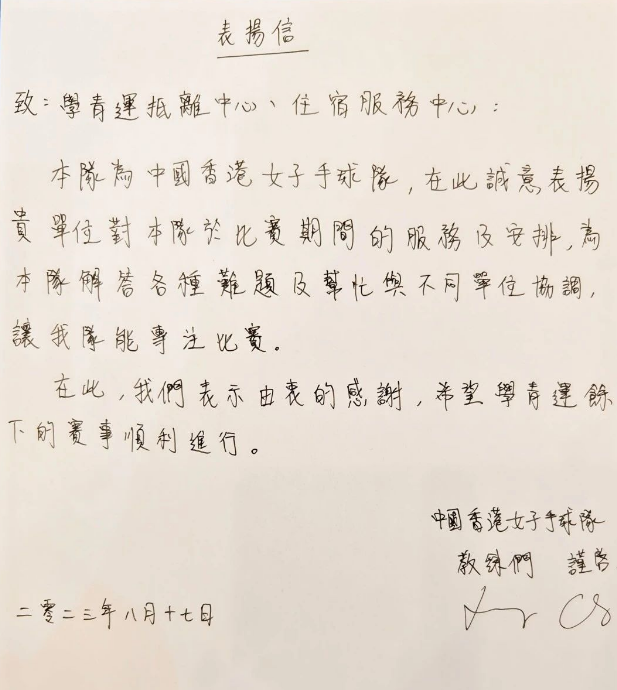 表揚信
致：學青運抵離中心、住宿服務中心：
本隊為中國香港女子手球隊，在此誠意表揚
貴單位對本隊於比賽期間的服務及安排，為
本隊解答各種難題及幫忙與不同單位協調，
讓我隊能專注比賽。
在此，我們表示由衷的感謝，希望學青運餘
下的賽事順利進行。
中國香港女子手球隊
教練們 謹啓
二零二三年八月十七日